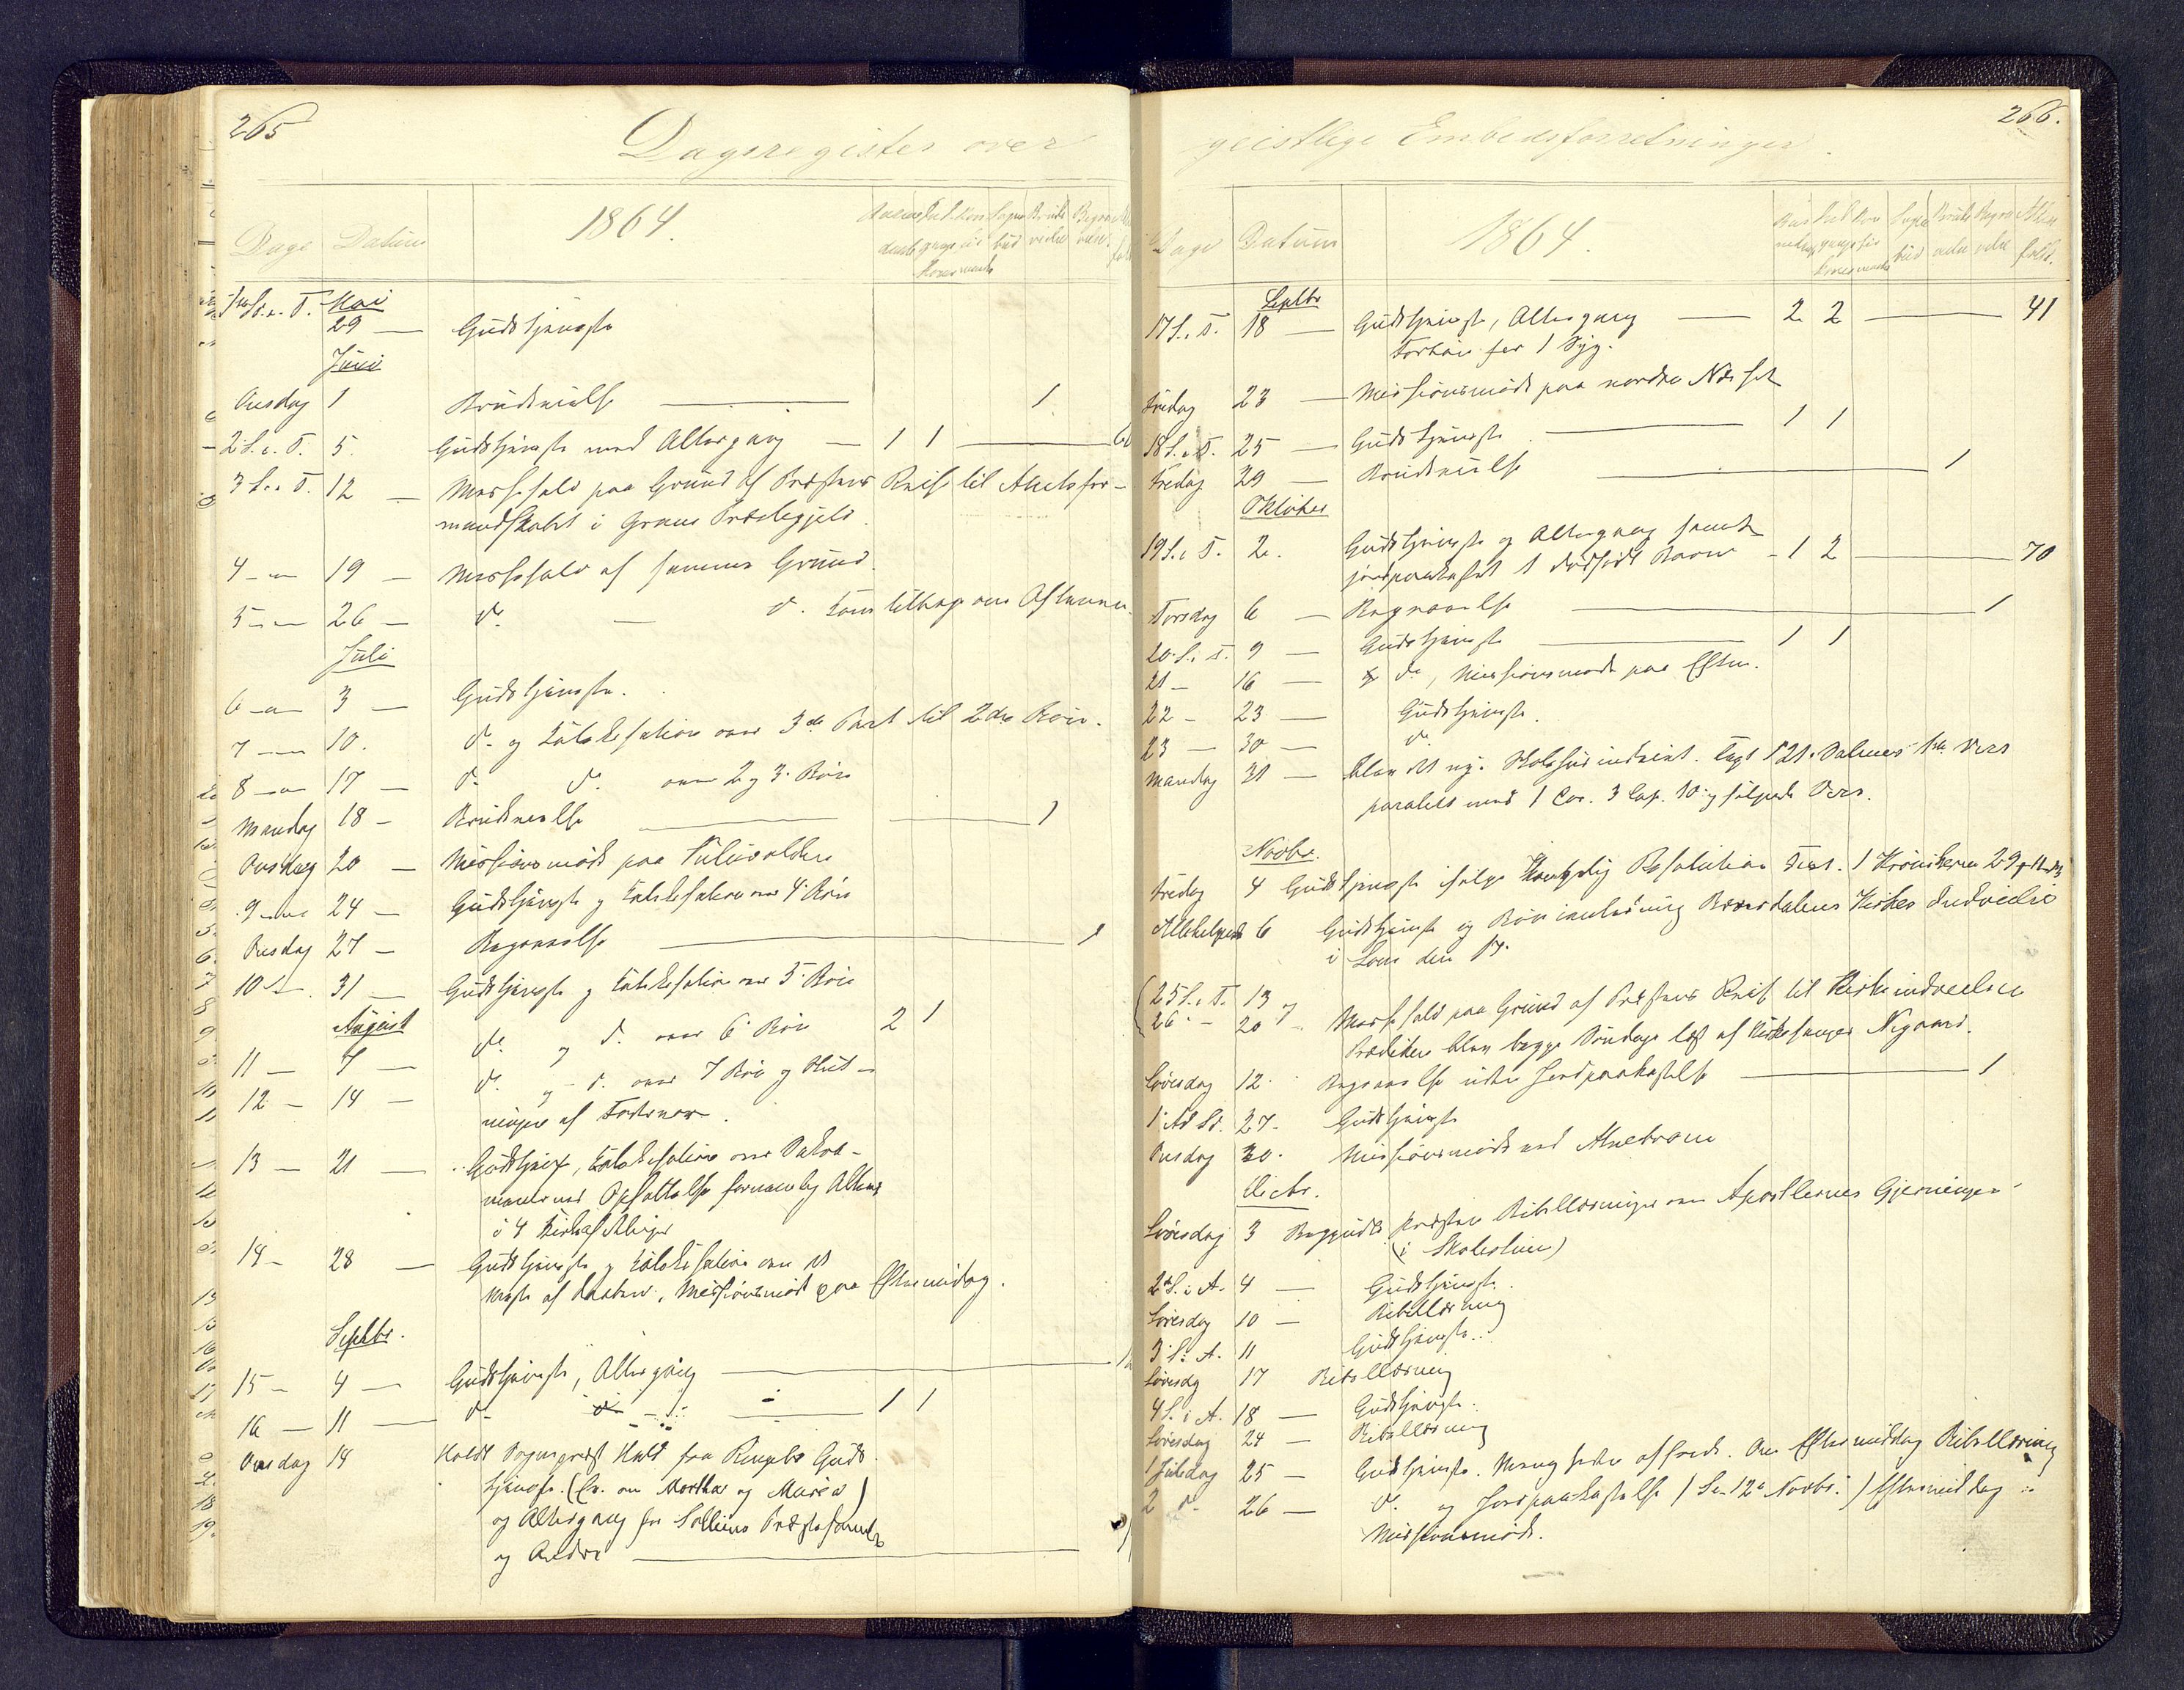 265
Dagsregister over
Dage Datum 1864.
1ste S. e. T. Mai
29 — Gudstjeneste
Juni
Onsdag 1 Brudevielse — 1
2 S. e. T. 5. Gudstjeneste med Altergang — 1 1 — 60
3 S. e. T. 12 — Messefald paa Grund af Præstens Reise til Amtsfor-
mandskabet i Grans Præstegjeld.
4 — 19 — Messefald af samme Grund.
5 — 26 — do. — do. Kom tilbage om Aftenen.
Juli
6 — 3 — Gudstjeneste.
7 — 10. do. og Katekesation over 3die Part til 2den Bøn.
8 — 17 — do. do. over 2 og 3. Bøn
Mandag 18 — Brudevielse — 1
Onsdag 20 — Missionsmøde paa
9 — 24 — Gudstjeneste og Katekesation over 4. Bøn
Onsdag 27 — Begravelse — 1
10 — 31 — Gudstjeneste og Katekesation over 5. Bøn
August
11 — 7 — do. og do. over 6. Bøn 2 1
12 — 14 — do. og do. over 7 Bøn og Slut-
ningen af Fadervor.
13 — 21 — Gudstjeneste, Katekesation over Sakra-
menternes
i 4
14 — 28 — Gudstjeneste og Katekesation om
af Daaben, Missionsmøde paa Eftermidag.
Septbr.
15 — 4 — Gudstjeneste, Altergang —
16 — 11 — do. 1 1
Onsdag 14 Holdt Sogneprest Hald fra Ringebo Guds-
tjeneste. (Ev. om Martha og Maria)
og Altergang for Solliens Præstefamilie
og Andre —
266.
geistlige Embedsforretninger.
Dage Datum 1864.
Septbr
17 S. e. T. 18 — Gudstjeneste, Altergang — 2 2 — 41
Forbøn for 1 Syg.
Fredag 23 — Missionsmøde paa nordre Næset
18 S. e. T. 25 — Gudstjeneste — 1 1
Fredag 29 — Brudevielse — 1
Oktober
19 S. e. T. 2. Gudstjeneste og Altergang samt
jordpaakastet 1 dødfødt Barn — 1 2 — 70
Torsdag 6 — Begravelse — 1
20 S. e. T. 9 — Gudstjeneste — 1 1
21 — 16 — do, Missionsmøde paa Efterm.
22 — 23 — Gudstjeneste.
23 — 30 — do.
Mandag 31 — blev det nye Skolehus indviet. Text 121. Salmes 1ste Vers
paralelt med 1 Cor. 3 Cap. 10 og følgende Vers.
Novbr.
Fredag 4 Gudstjeneste ifølge Kongelig Resolution Text. 1 Krønikernes 29
Allehelgensd. 6 Gudstjeneste og Bøn i anledning Kirkes Indvielse
i Lom den 17.
(25 S. e. T. 13 og
26 — 20 — Messefald paa Grund af Præstens Reise til Kirkeindvielsen
Prædiken blev begge Søndage læst af Kirkesanger Nygaard.
Løverdag 12. Begravelse uden Jordpaakastelse — 1
1 Ad S. 27. Gudstjeneste
Onsdag 30. Missionsmøde ved Atnebroen
Decbr.
Løverdag 3 Begyndte Præsten Bibellæsninger over Apostlernes Gjerninger
(i Skolestuen)
2 S. i A. 4 — Gudstjeneste.
Løverdag 10 — Bibellæsning
3 S. i A. 11 Gudstjeneste.
Løverdag 17 Bibellæsning
4 S. i A. 18 — Gudstjeneste.
Løverdag 24 — Bibellæsning
1 Juledag 25 — Gudstjeneste. Om Eftermiddag Bibellæsning
2 do. 26 — do. og Jordpaakastelse (Se 12te Novbr.) Eftermiddag
Missionsmøde.